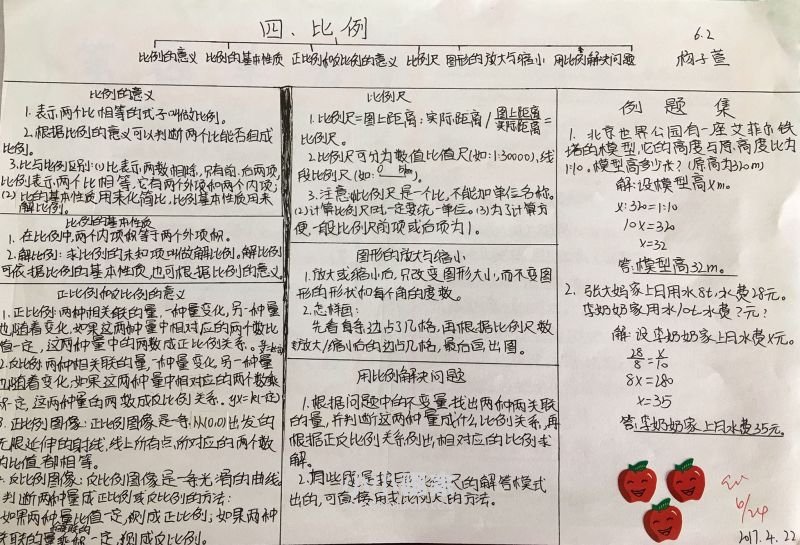 四、比例
6.2
比例的意义 比例的基本性质 正比例和反比例的意义 比例尺 图形的放大与缩小 用比例解决问题
杨子萱
比例的意义
1.表示两个比相等的式子叫做比例。
2.根据比例的意义可以判断两个比能否组成
比例。
3.比与比例区别:(1)比表示两数相除,只有前、后两项,
比例表示两个比相等,它有两个外项和两个内项;
(2)比的基本性质用来化简比,比例基本性质用来
解比例。
比例的基本性质
1.在比例中,两个内项积等于两个外项积。
2.解比例:求比例的未知项叫做解比例。解比例
可依据比例的基本性质,也可根据比例的意义。
正比例和反比例的意义
1.正比例:两种相关联的量,一种量变化,另一种量
也随着变化,如果这两种量中相对应的两个数比
值一定,这两种量中的两数成正比例关系。
2.反比例:两种相关联的量,一种量变化,另一种量
也随着变化,如果这两种量中相对应的两个数乘
积一定,这两种量的两数成反比例关系。
3.正比例图像:正比例图像是一条从(0,0)出发的
无限延伸的射线,线上所有点,所对应的两个数
的比值都相等。
4.反比例图像:反比例图像是一条光滑的曲线
判断两种量成正比例或反比例的方法:
如果两种量比值一定,则成正比例;如果两种
关联的量乘积一定,则成反比例。
比例尺
1.比例尺=图上距离:实际距离/图上距离/实际距离=
比例尺。
2.比例尺可分为数值比值尺(如:1:30000),线
段比例尺(如: 0 5km)。
3.注意:(1)比例尺是一个比,不能加单位名称。
(2)计算比例尺时一定要统一单位。(3)为了计算方
便,一般比例尺前项或后项为1。
图形的放大与缩小
1.放大或缩小后,只改变图形大小,而不变图
形的形状和每个角的度数。
2.怎样画:
先看每条边占了几格,再根据比例尺数
放大/缩小后的边占几格,最后画出图。
用比例解决问题
1.根据问题中的不变量找出两种相关联
的量,并判断这两种量成什么比例关系,再
根据正反比例关系例出相对应的比例求
解。
2.有些应是按尺的解答模式
出的,可直接用求比例尺的方法。
例题集
1.北京世界公园有一座艾菲尔铁
塔的模型,它的高度与原高度比为
1:10。模型高多少米?(原高为320m)
解:设模型高xm。
x:320=1:10
10x=320
x=32
答:模型高32m。
2.张大妈家上月用水8t,水费28元。
李奶奶家用水10t,水费?元?
解:设李奶奶家上月水费x元。
28/8=x/10
8x=280
x=35
答:李奶奶家上月水费35元。
6/24
2017.4.22